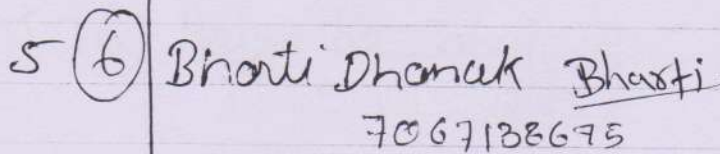 5 6 Bharti Dhanak Bharti
7067138675